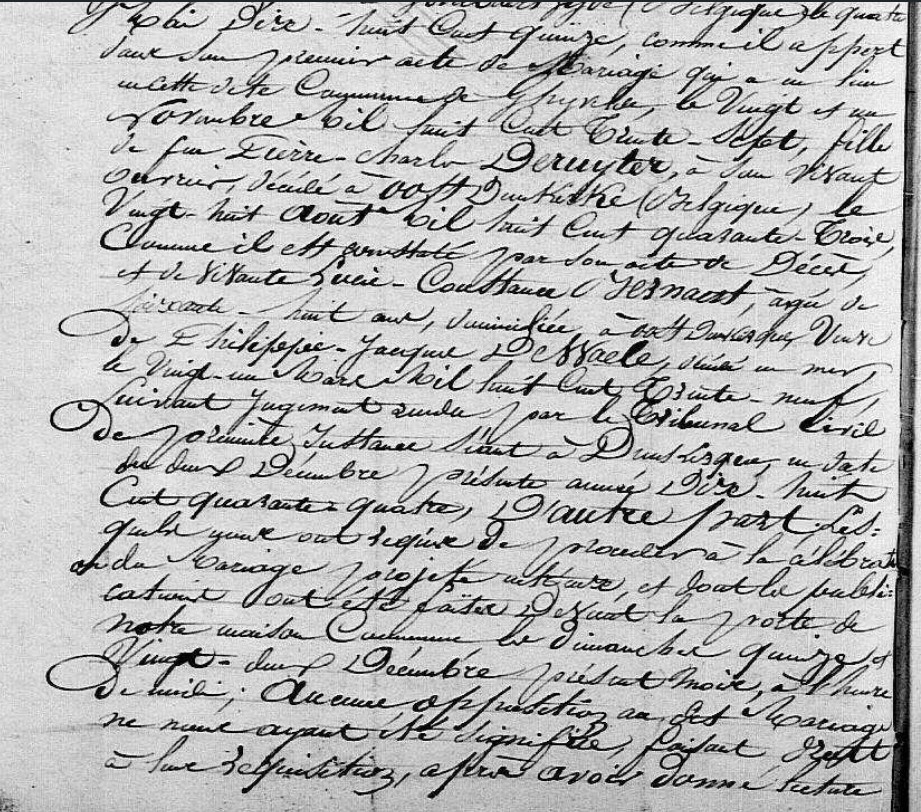 (Belgique) le quatre
Mai Dixe-huit Cent quinze, comme il appert
dans son premier acte de Mariage qui a eu lieu
en cette dite Commune de Ghyvelde, le Vingt et un
Novembre Mil huit Cent Trente-Sept, fille
de feu Pierre-Charles Deruyter, à son vivant
ouvrier, décédé à oost Dunkerke (Belgique) le
Vingt-huit Août Mil huit Cent quarante-Trois,
Comme il est constaté par son acte de Décès,
et de vivante Lucie-Constance agée de
soixante-huit ans, domiciliée, à Veuve
De Philippe-Jacques DeWaele, décédé en mer,
le Vingt-un Mars Mil huit Cent Trente-neuf,
Suivant Jugement rendu par le Tribunal Civil
De première Instance séant à Dunkerque, en date
du deux Décembre présente année Dixe-huit
Cent quarante-quatre, D'autre part Les-
quels nous ont requis de procéder à la célébrati
on du Mariage projeté entr'eux, et dont les publi-
cations ont été faites Devant la porte de
notre maison Commune les dimanches quinze et
Vingt-deux Décembre présent mois, à l'heure
De midi; Aucune opposition au dit Mariage
ne nous ayant été signifiée, faisant droit
à leur réquisition, après avoir donné lecture